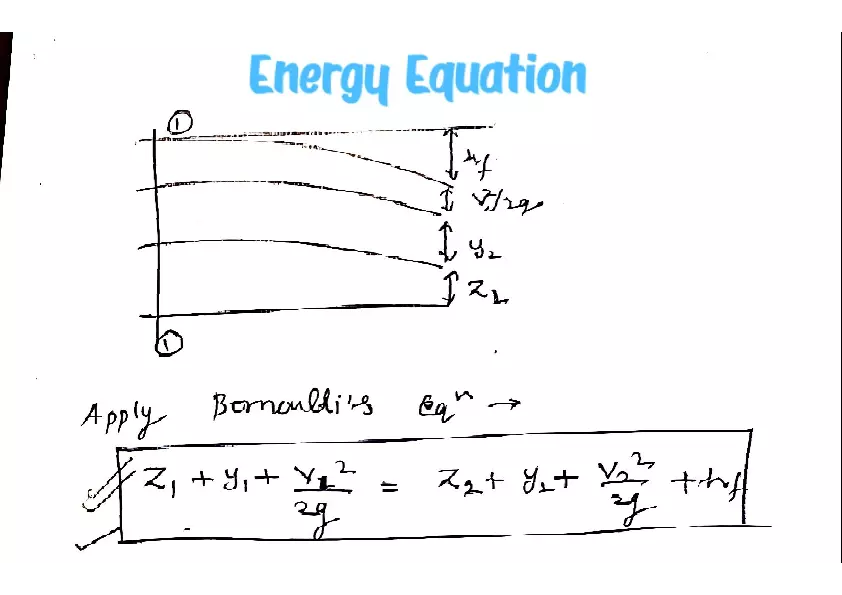 Energy Equation
①
hf
V₂²/2g
y₂
Z₂
①
Apply Bernoulli's Eqⁿ →
Z₁ + y₁ + V₁²/2g = Z₂ + y₂ + V₂²/2g + hf